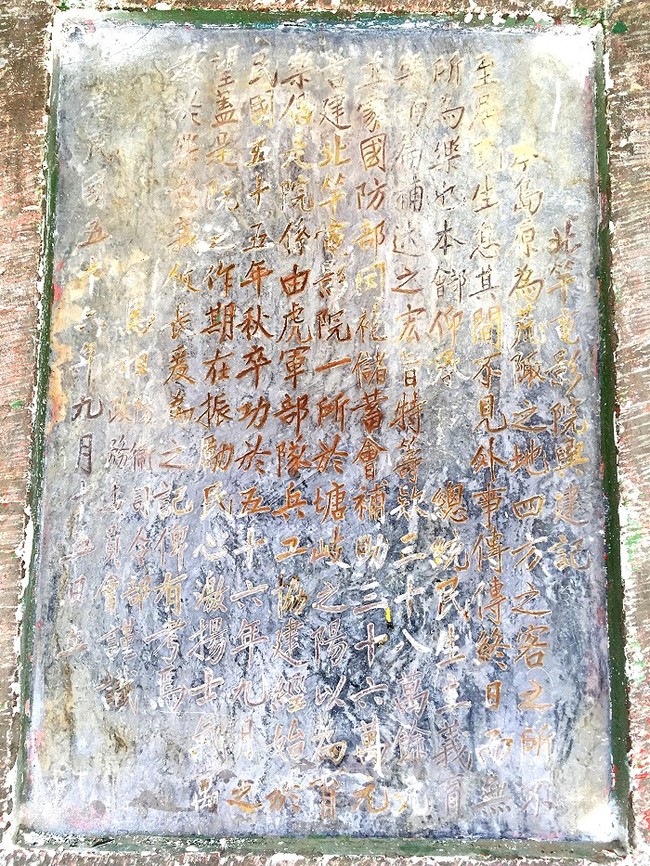 北竿電影院興建記
本島原為荒陬之地四方之客之所不
至居民生息其間不見外事傳傳終日而無
所為樂也本部仰承 總統民生主義育
樂兩篇補述之宏旨特籌款三十八萬餘元
國防部同袍儲蓄會補助三十六萬元
建北竿電影院一所於塘岐之陽以為育
樂 院係由虎軍部隊兵工協建經始於
民國五十五年秋卒功於五十六年九月之
望蓋是院之作期在振勵民心激揚士氣
於 長爰為之記俾有考焉
馬祖防衛司令部
政務委員會謹識
民國五十六年九月十五日立